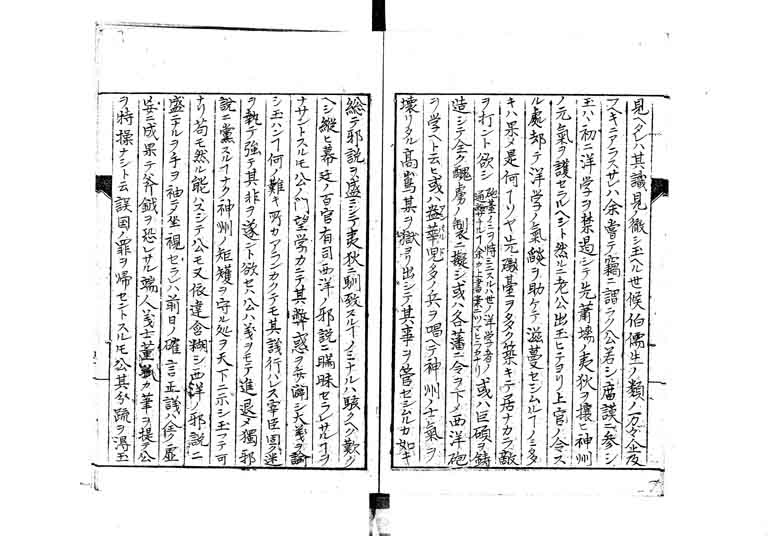 見ヘタレハ其識見ノ徹シ玉ヘル世候伯儒生ノ類ノ万々企及
フヘキニアラスサレハ余嘗テ竊ニ謂ラク公若シ廟議ニ参シ
玉ハヽ初ニ洋学ヲ禁遏シテ先蕭墻ノ夷狄ヲ攘ヒ神州
ノ元氣ヲ護セラルヘシト然ルニ老公出玉ヒテヨリ上官ノ令ス
ル處却テ洋学ノ氣燄ヲ助ケテ滋蔓セシムルノミ多
キハ果メ是何ーソヤ先礟臺ヲ夕ク築キテ居ナカラ敵
ヲ打ント欲シ 砲臺ノミヲ恃ミスルハ世ノ洋学者ノ 或ハ巨碩ヲ鋳
造シテ全ク醜虜ノ製ニ擬シ或ハ各藩ニ令ヲ下メ西洋砲
ヲ学ヘト云ヒ或ハ益華児多ノ兵ヲ唱ヘテ神州ノ士氣ヲ
壊リタル高嶌某ヲ獄ヨリ出シテ其事ヲ管セシムルカ如キ
総テ邪説ヲ盛ニシテ夷狄ニ馴致スルーノミナルハ駭クヘク歎ク
ヘシ縦ヒ幕廷ノ百官有司西洋ノ邪説ニ瞞昧セラレサルーヲ
ナサントスルモ公ノ門望学力ニテ其弊惑ヲ弁闢シ大義ヲ論
シ玉ハンー何ノ難キ所カアランカクテモ其議行ハレス宰臣固ク迷
ヲ執テ強テ其非ヲ遂ント欲セハ公ハ義ヲモテ進退メ獨邪
説ニ黨スルーナク神州ノ矩矱ヲ守ル処ヲ天下ニ示シ玉フテ可
ナリ苟モ然ル能ハスシテ公モ又依違含糊シ西洋ノ邪説ニ
盛ニナルヲ手ヲ袖テ坐視セラレハ前日ノ確言正議ハ全ク虚
妄ニ成果テ斧鉞ヲ恐レサル端人義士董狐カ筆ヲ提テ公
ヲ特操ナシト云誤国ノ罪ヲ帰セントスルモ公其分疏ヲ得玉